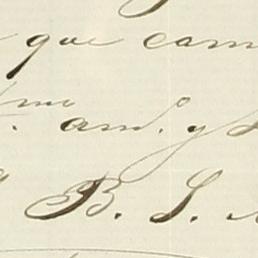 que cam
mo am. y S
B. S.